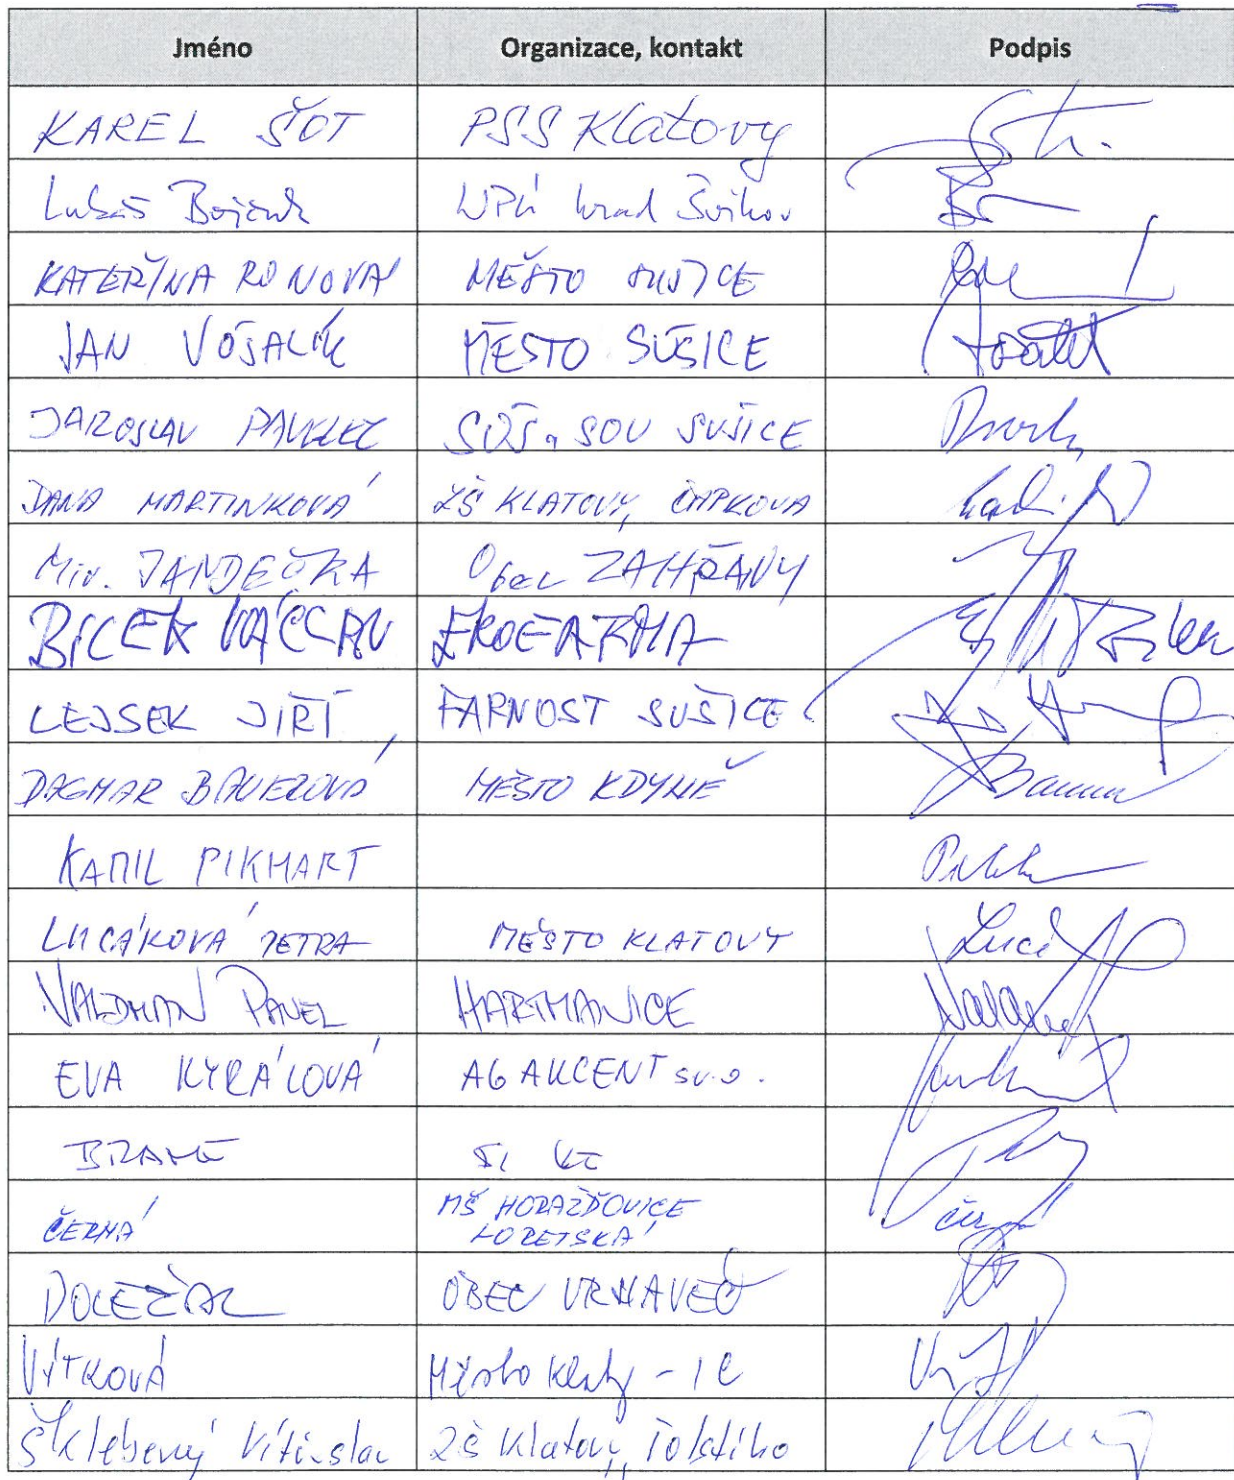 Jméno Organizace, kontakt Podpis
KAREL ŠOT PSS Klatovy
Luboš NPÚ hrad Švihov
KATEŘINA RONOVÁ MĚSTO SUŠICE
JAN VOSÁLÍK MĚSTO SUŠICE
JAROSLAV PAVELEC SOŠ a SOU SUŠICE
DANA MARTINKOVÁ ZŠ KLATOVY, ČAPKOVA
Mir. JANDEČKA Obec ZAHRÁDKY
BÍCEK VÁCLAV EKOFARMA
LEJSEK JIŘÍ FARNOST SUŠICE
DAGMAR BAUEROVÁ MĚSTO KDYNĚ
KAMIL PIKHART
LUCÁKOVÁ PETRA MĚSTO KLATOVY Luc
VALDMAN PAVEL HARTMANICE
EVA KYRÁLOVÁ AG AKCENT s.r.o.
ČERNÁ MŠ HORAŽĎOVICE
LORETSKÁ
DOLEŽAL OBEC VRHAVEČ
VÍTKOVÁ Město Klatovy - IC
Šklebený Vítězslav ZŠ Klatovy, Tolstého